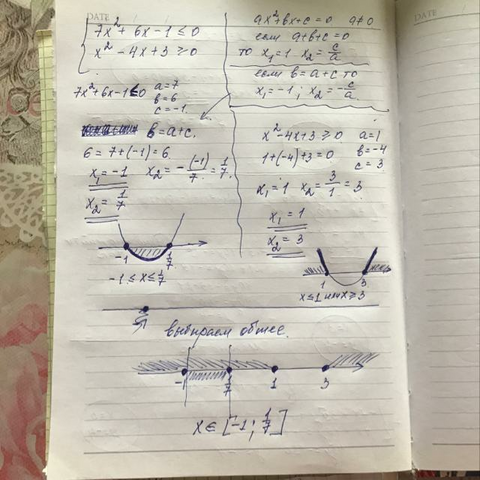 DATE
7x² + 6x - 1 ≤ 0
x² - 4x + 3 ≥ 0
7x² + 6x - 1 ≤ 0
a = 7
b = 6
c = -1
b = a + c.
6 = 7 + (-1) = 6
x₁ = -1 x₂ = -(-1)/7 = 1/7.
x₂ = 1/7
-1 1/7
-1 ≤ x ≤ 1/7
ax² + bx + c = 0 a ≠ 0
если a + b + c = 0
то x₁ = 1 x₂ = c/a
если b = a + c то
x₁ = -1; x₂ = -c/a
x² - 4x + 3 ≥ 0 a = 1
b = -4
c = 3
1 + (-4) + 3 = 0
x₁ = 1 x₂ = 3/1 = 3
x₁ = 1
x₂ = 3
1 3
x ≤ 1 или x ≥ 3
выбираем общее.
-1 1/7 1 3
x ∈ [-1; 1/7]
DATE